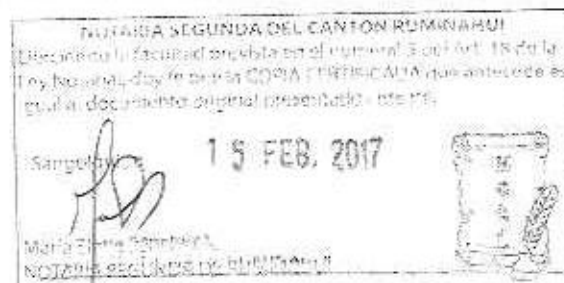 NOTARIA SEGUNDA DEL CANTON RUMIÑAHUI
la facultad prevista en el numeral 5 del Art. 18 de la
Ley Notarial, doy fe que la COPIA CERTIFICADA que antecede es
igual al documento original presentado ante mi.
Sangolquí
15 FEB. 2017
María Elena
NOTARIA SEGUNDA DE RUMIÑAHUI